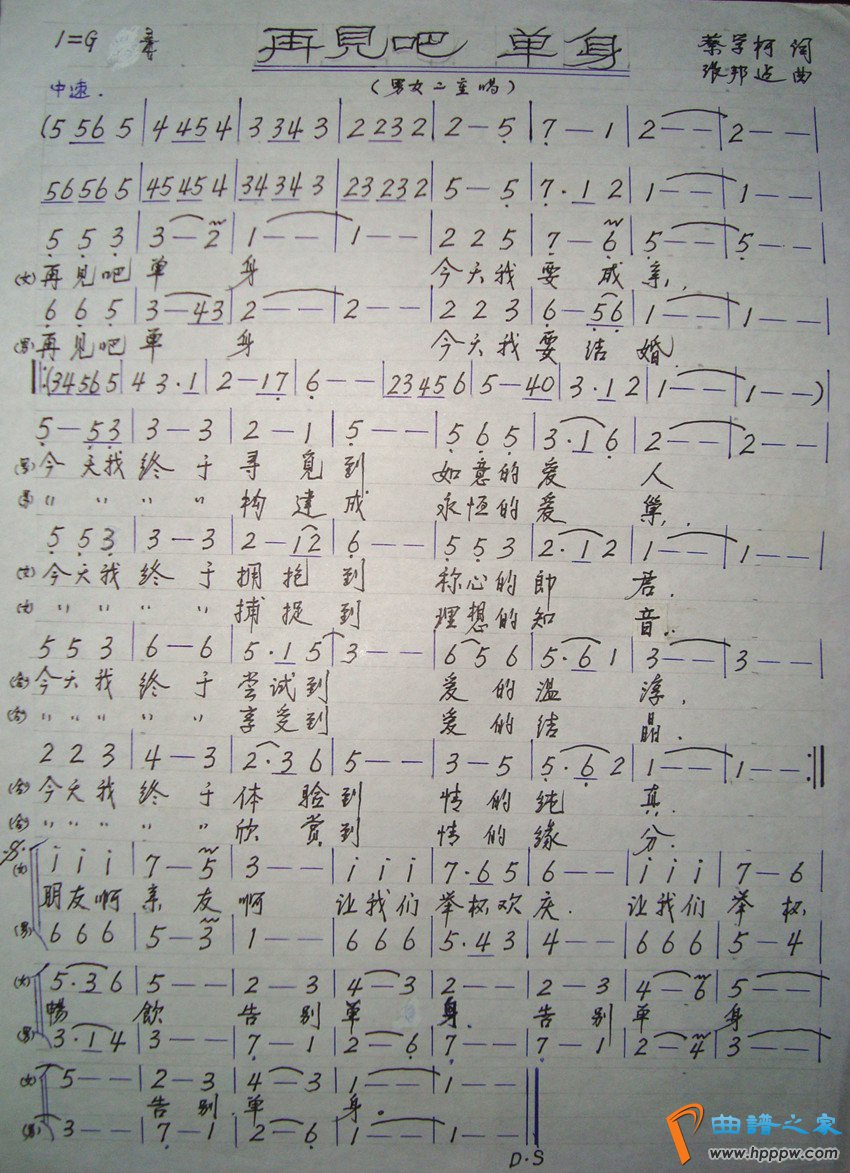 1=G 3/4 再見吧 单身
蔡学柯 词
张邦 曲
中速. (男女二重唱)
(5 56 5 | 4 45 4 | 3 34 3 | 2 23 2 | 2 — 5 | 7 — 1 | 2 — — | 2 — — |
56 56 5 | 45 45 4 | 34 34 3 | 23 23 2 | 5 — 5 | 7 · 1 2 | 1 — — | 1 — — |
5 5 3 | 3 — 2 | 1 — — | 1 — — | 2 2 5 | 7 — 6 | 5 — — | 5 — — |
(女) 再見吧 单 身 今天我 要 成 亲,
6 6 5 | 3 — 43 | 2 — — | 2 — — | 2 2 3 | 6 — 56 | 1 — — | 1 — — |
(男) 再見吧 单 身 今天我 要 结 婚.
‖: (34 56 5 | 4 3 · 1 | 2 — 17 | 6 — — | 23 45 6 | 5 — 40 | 3 · 1 2 | 1 — — | 1 — — )
5 — 53 | 3 — 3 | 2 — 1 | 5 — — | 5 6 5 | 3 · 1 6 | 2 — — | 2 — — |
(男) 今 天我 终 于 寻 觅 到 如意的 爱 人
(男) " " " " " 构 建 成 永恒的 爱 巢,
5 5 3 | 3 — 3 | 2 — 12 | 6 — — | 5 5 3 | 2 · 1 2 | 1 — — | 1 — — |
(女) 今天我 终 于 拥 抱 到 称心的 帥 君.
(女) " " " " " 捕 捉 到 理想的 知 音.
5 5 3 | 6 — 6 | 5 · 1 5 | 3 — — | 6 5 6 | 5 · 6 1 | 3 — — | 3 — — |
(合) 今天我 终 于 尝试到 爱 的 温 淳,
(合) " " " " " 享受到 爱 的 结 晶.
2 2 3 | 4 — 3 | 2 · 3 6 | 5 — — | 3 — 5 | 5 · 6 2 | 1 — — | 1 — — :‖
(合) 今天我 终 于 体 验到 情 的 纯 真.
(合) " " " " " 欣 赏到 情 的 缘 分.
(女) i i i | 7 — 5 | 3 — — | i i i | 7 · 6 5 | 6 — — | i i i | 7 — 6 |
朋友啊 亲 友 啊 让我们 举杯欢 庆. 让我们 举 杯
(男) 6 6 6 | 5 — 3 | 1 — — | 6 6 6 | 5 · 4 3 | 4 — — | 6 6 6 | 5 — 4 |
(女) 5 · 3 6 | 5 — — | 2 — 3 | 4 — 3 | 2 — — | 2 — 3 | 4 — 6 | 5 — — |
暢 飲 告 别 单 身. 告 别 单 身
(男) 3 · 1 4 | 3 — — | 7 — 1 | 2 — 6 | 7 — — | 7 — 1 | 2 — 4 | 3 — — |
(女) 5 — — | 2 — 3 | 4 — 3 | 1 — — | 1 — — ‖
告 别 单 身。
(男) 3 — — | 7 — 1 | 2 — 6 | 1 — — | 1 — — ‖
D·S
曲谱之家
www.hpppw.com